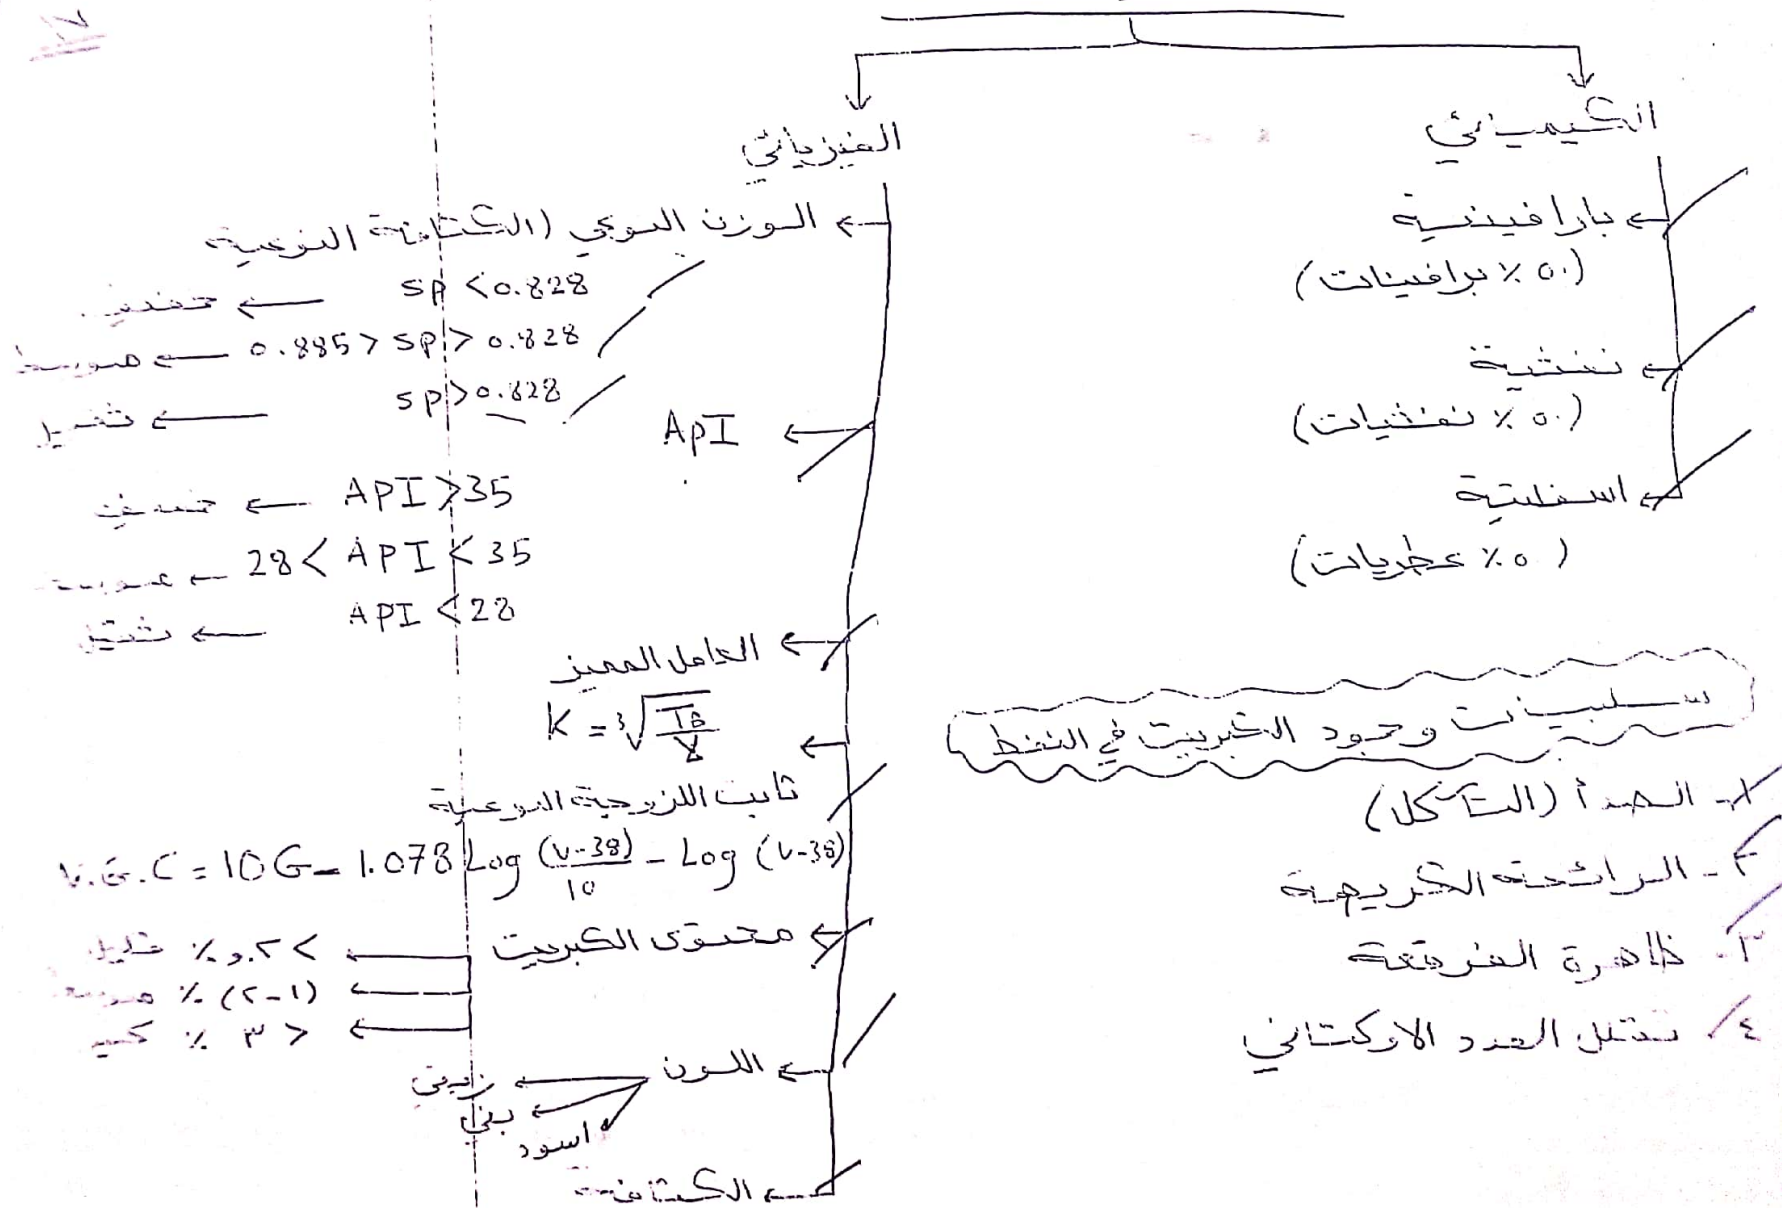 الكيميائي
بارافينية
(٥٠٪ برافينات)
نفثية
(٥٠٪ نفثيات)
اسفلتية
(٥٠٪ عطريات)
سلبيات وجود الكبريت في النفط
١- الصدأ (التآكل)
٢- الرائحة الكريهة
٣- ظاهرة الفرقعة
٤ تقلل العدد الاوكتاني
الفيزيائي
الوزن النوعي (الكثافة النوعية
sp <0.828 ← خفيف
0.885 > sp > 0.828 ← متوسط
sp > 0.828 ← ثقيل
ApI
API >35 ← خفيف
28 < API < 35 ←
API < 28 ← ثقيل
العامل المميز
K = ³√TB/γ
ثابت اللزوجة النوعية
V.G.C = 10G - 1.078 Log (v-38)/10 - Log (v-38)
محتوى الكبريت
> ٠.٢ ٪ قليل
(١-٢) ٪ متوسط
< ٣ ٪ كبير
اللون
زيتي
بني
اسود
الكثافة